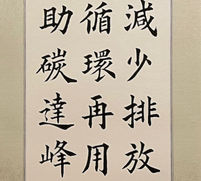 減少排放
循環再用
助碳達峰